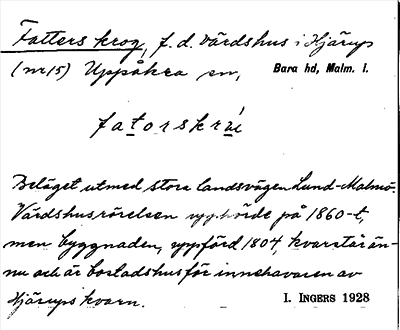 Fatters krog, f. d. värdshus i Hjärups
(nr 15) Uppåkra sn, Bara hd, Malm. l.
fatorskrú
Beläget utmed stora landsvägen Lund-Malmö.
Värdshusrörelsen upphörde på 1860-t,
men byggnaden, uppförd 1804, kvarstår än-
nu och är bostadshus för innehavaren av
Hjärups kvarn. I. INGERS 1928